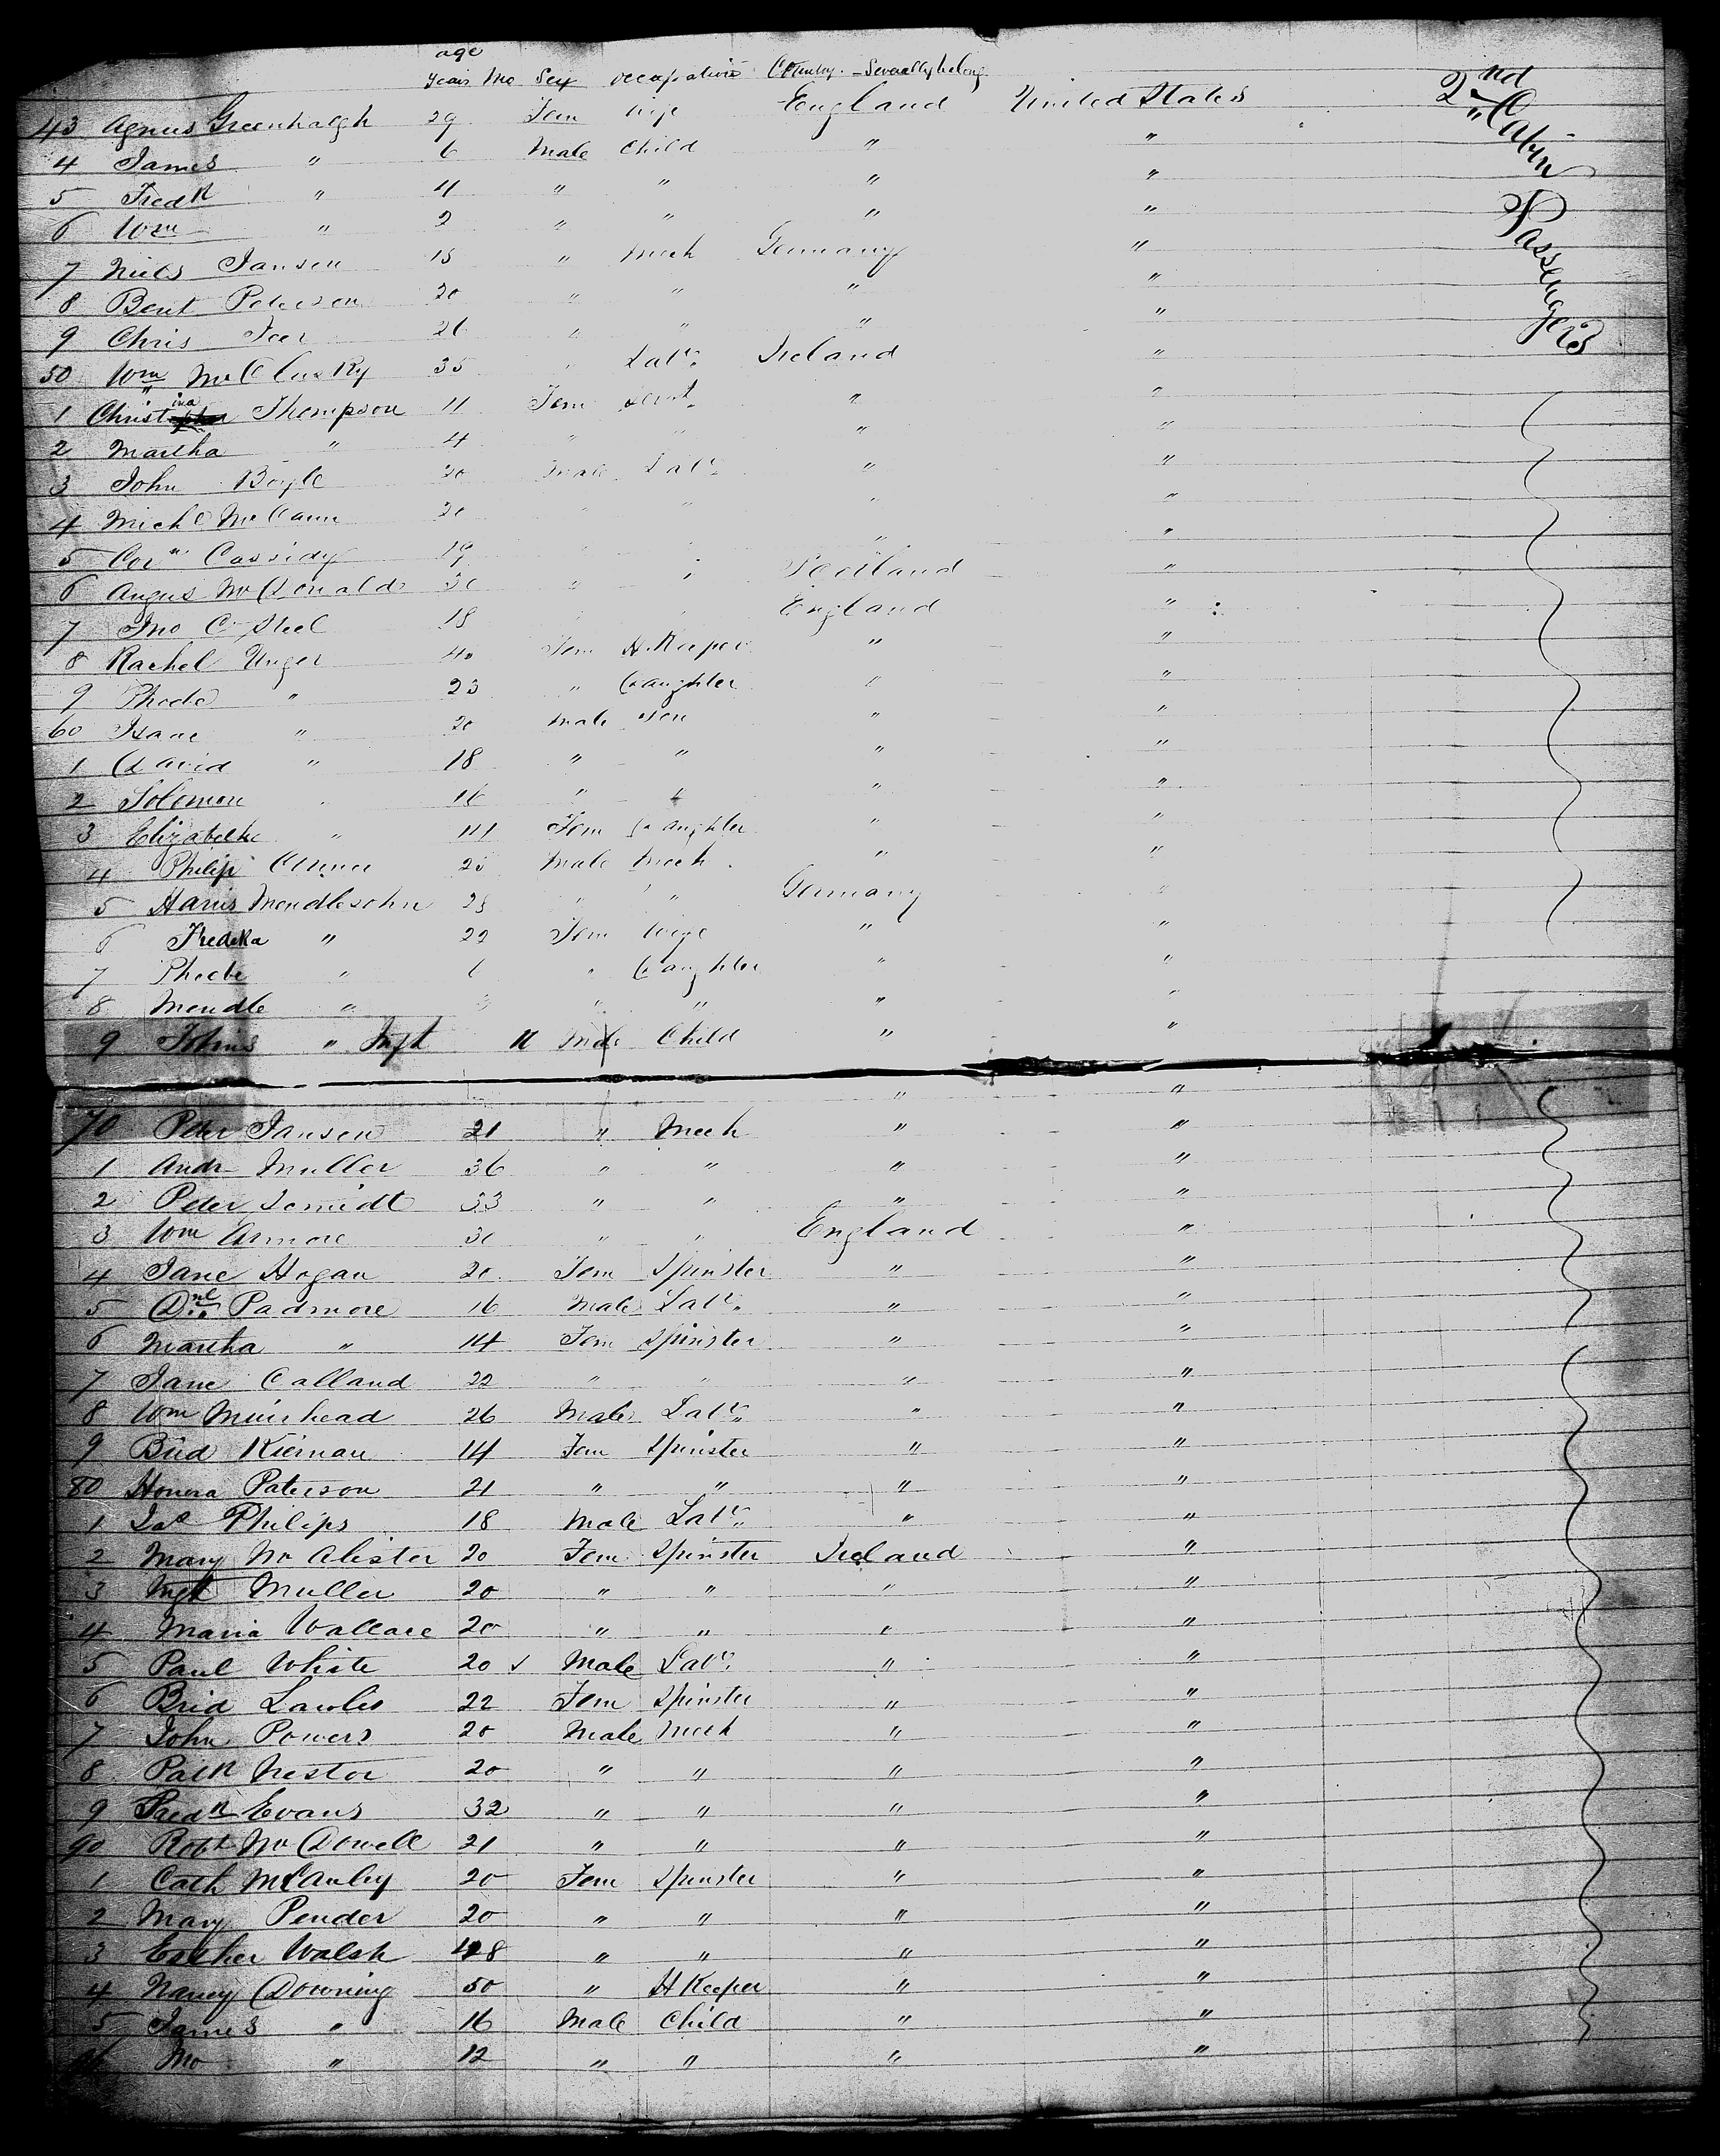 age
Years Mo Sex occupations Country - Severally belong
43 Agnus Greenhalgh 29 Fem Wife England United States
4 James " 6 Male Child " "
5 Fredk " 4 " " " "
6 Wm " 2 " " " "
7 Niels Jansen 18 " Mech Germany "
8 Bent Peterson 20 " " " "
9 Chris 26 " " " "
50 Wm McClusky 35 " Labr Ireland "
1 Christina Thompson 11 Fem Servt " "
2 Martha " 4 " " " "
3 John Boyle 20 Male Labr " "
4 Michl McCann 20 " " " "
5 Corn Cassidy 19 " " " "
6 Angus McDonald 30 " " Scotland "
7 Jno C Steel 18 " England "
8 Rachel Unger 40 Fem H. Keeper " "
9 Phoebe " 23 " Daughter " "
60 Isaac " 20 Male Son " "
1 David " 18 " " " "
2 Solomon " 16 " " " "
3 Elizabeth " 14 Fem Daughter " "
4 Philip 25 Male Mech " "
5 Harris Mendlesohn 28 " " Germany "
6 Fredeka " 22 Fem Wife " "
7 Phoebe " 6 " Daughter " "
8 Mendle " 3 " " " "
9 " Inft 11 Male Child " "
" "
70 Peter Jansen 21 " Mech " "
1 Andr Muller 36 " " " "
2 Peter Scmidt 33 " " " "
3 Wm Armore 30 " " England "
4 Jane Hogan 20 Fem Spinster " "
5 Dnl Padmore 16 Male Labr " "
6 Martha " 14 Fem Spinster " "
7 Jane Calland 22 " " " "
8 Wm Muirhead 26 Male Labr " "
9 Brid Kiernan 14 Fem Spinster " "
80 Honora Paterson 21 " " " "
1 Jas Philips 18 Male Labr " "
2 Mary McAlister 20 Fem Spinster Ireland "
3 Mgt Muller 20 " " " "
4 Maria Wallace 20 " " " "
5 Paul White 20 Male Labr " "
6 Brid Lawles 22 Fem Spinster " "
7 John Powers 20 Male Mech " "
8 Patk Nestor 20 " " " "
9 Fredk Evans 32 " " " "
90 Robt McDowell 21 " " " "
1 Cath McCauley 20 Fem Spinster " "
2 Mary Pender 20 " " " "
3 Esther Walsh 48 " " " "
4 Nancy Downing 50 " H Keeper " "
5 James " 16 Male Child " "
96 " 12 " " " "
2nd Cabin Passengers